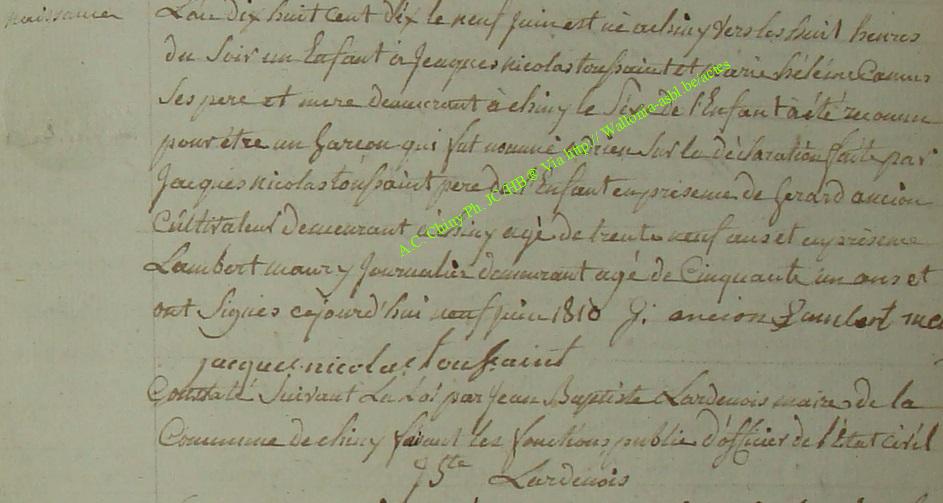 naissance
L'an dix huit cent dix le neuf juin est né a chiny vers les huit heures
du soir un Enfant à jacques nicolas toussaint et marie hélène Camus
Ses pere et mere demeurant à chiny le Sexe de l'Enfant à été reconnu
pour être un Garcon qui fut nommé sur la déclaration faite par
Jacques nicolas toussaint pere de l'Enfant en présence de Gerard ancion
Cultivateur demeurant à chiny agé de trente neuf ans et en présence
Lambert maury journalier demeurant agé de Cinquante un ans et
ont Signés cejourd'hui neuf juin 1810 J. ancion Lambert
jacques nicolas toussaint
Constaté Suivant La Loi par Jean Baptiste Lardenois maire de la
Commune de chiny faisant les fonctions public d'officier de l'État civil
JBte Lardenois
A.C. Chiny Ph. JC HB @ Via http// Wallonia-asbl.be/actes